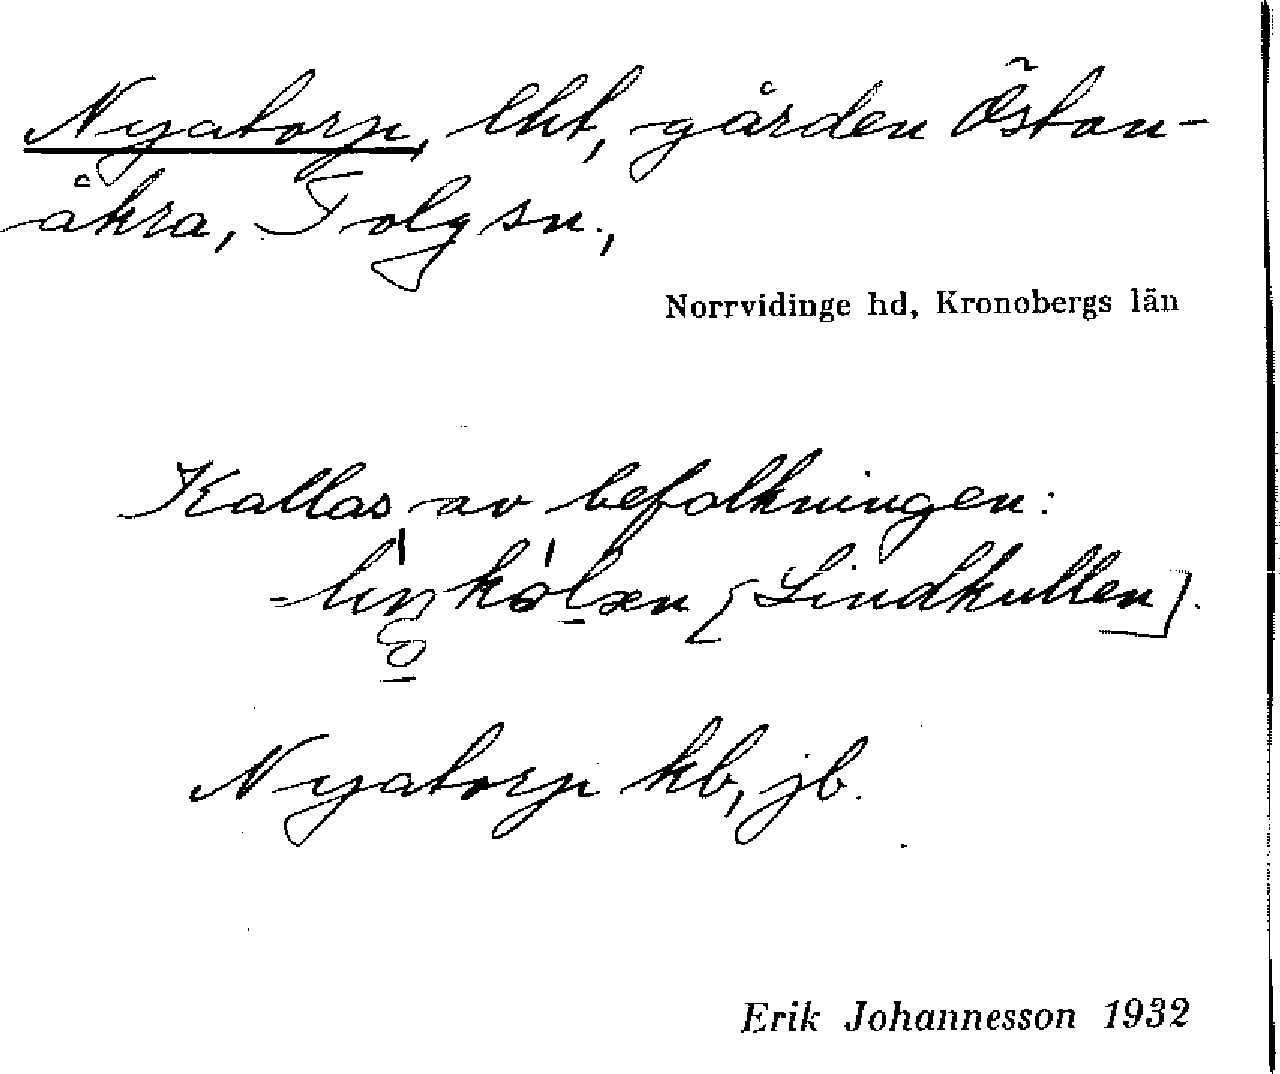 Nyatorp, lht, gården Östan-
åkra, Tolg sn.,
Norrvidinge hd, Kronobergs län
Kallas av befolkningen:
[Lindkullen].
Nyatorp kb, jb.
Erik Johannesson 1932